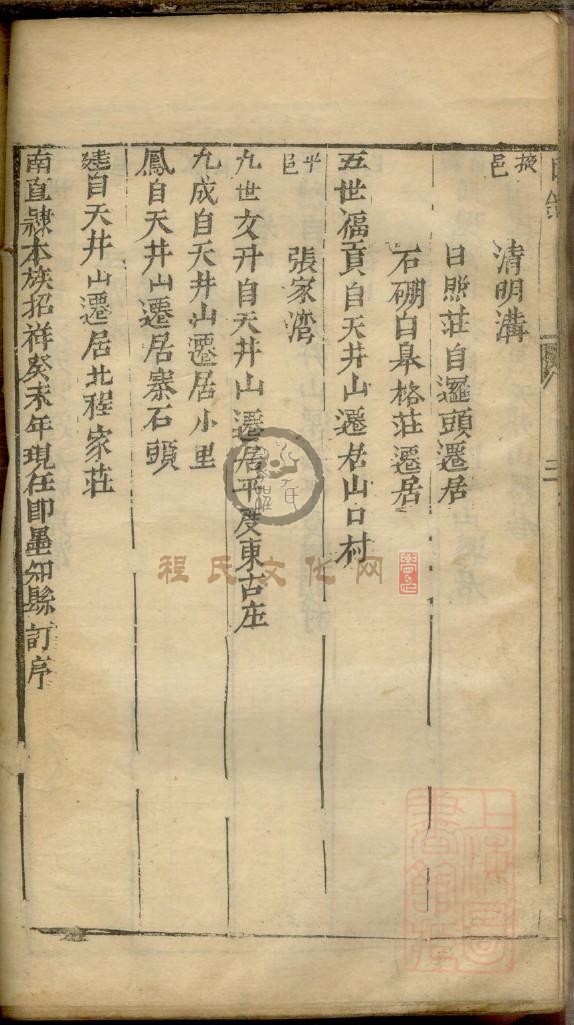 掖邑
清明溝
日照莊自邏頭遷居
石硼白臯格莊遷居
五世福貢自天井山遷居山口村
平邑
張家湾
九世文升自天井山遷居平度東古庄
九成自天井山遷居小里
鳳自天井山遷居寨石頭
建自天井山遷居北程家莊
南直隷本族招祥癸未年現任即墨知縣訂序
三
程氏文化网
上海圖書館藏